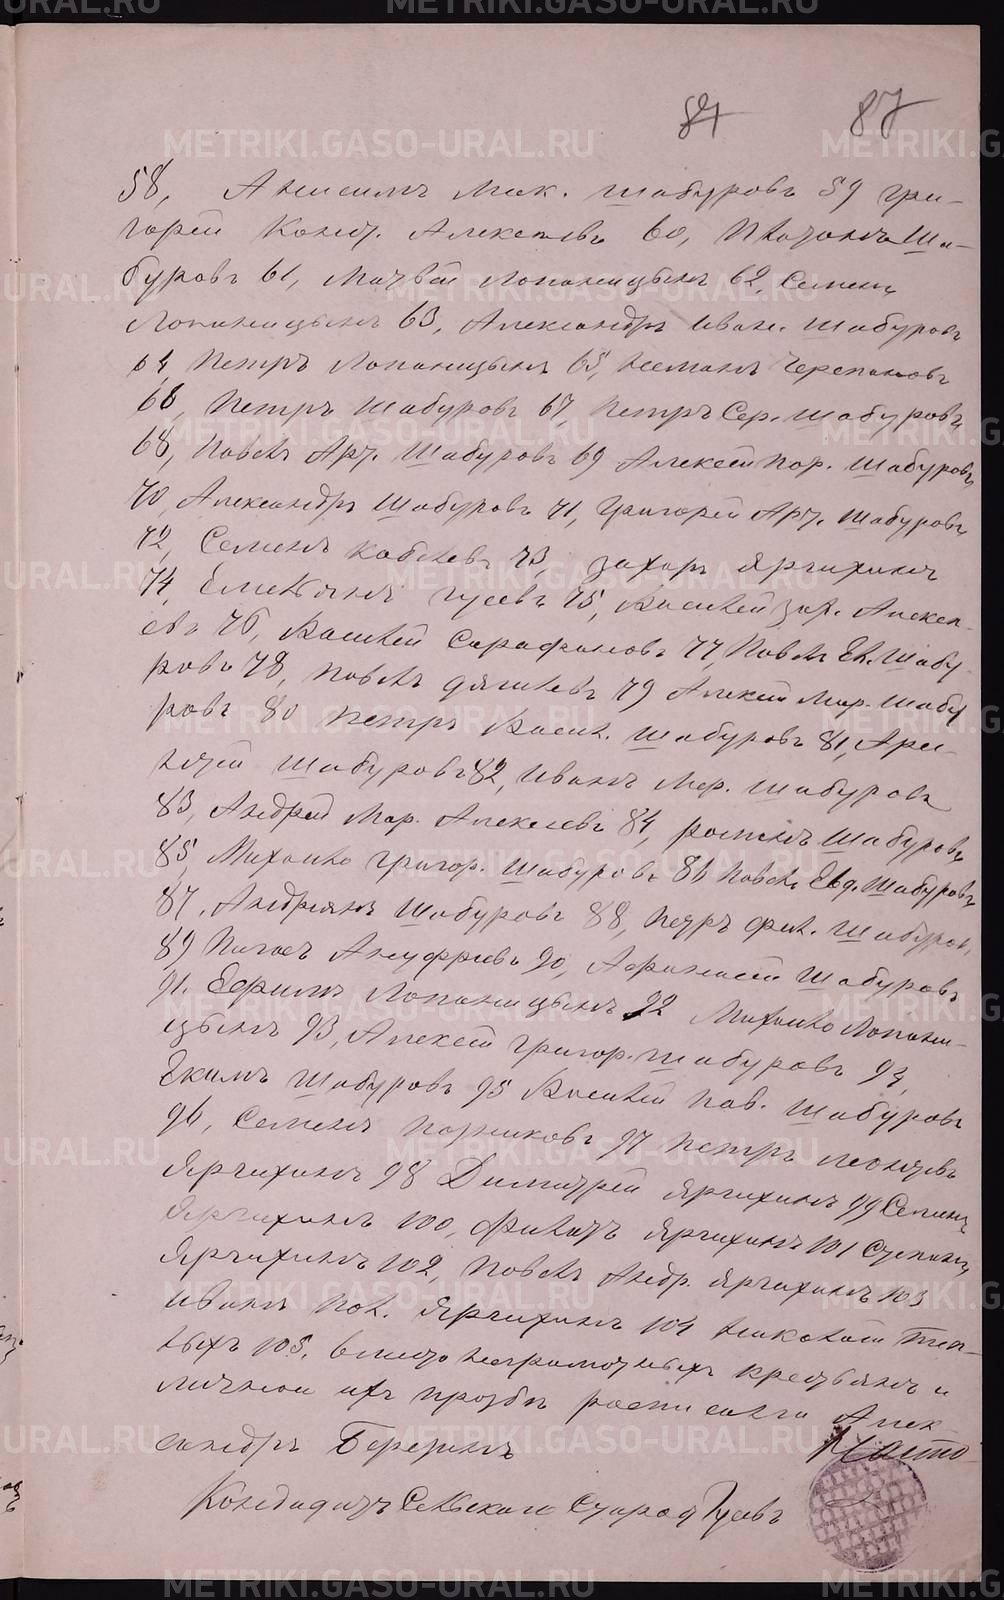 84 87
58, Анисимъ Мак. Шабуровъ 59 Гри-
горей Конд. Алексеевъ 60, Платонъ Ша-
буровъ 61, Матвей Лопаницынъ 62, Семенъ
Лопаницынъ 63, Александръ Иван. Шабуровъ
64 Петръ Лопаницынъ 65, Черепановъ
66, Петръ Шабуровъ 67, Петръ Сер. Шабуровъ
68, Павелъ Арт. Шабуровъ 69 Алексей Пор. Шабуровъ
70, Александръ Шабуровъ 71, Григорей Арт. Шабуровъ
72, Семенъ Кабелевъ 73, Захаръ Ярчихинъ
74, Емельянъ Гусевъ 75, Василей Зах. Алексе-
евъ 76, Василей Сарафановъ 77, Павелъ Ек. Шабу-
ровъ 78, Павелъ 79 Алексей Мар. Шабу
ровъ 80 Петръ Васил. Шабуровъ 81, Арси-
нтей Шабуровъ 82, Иванъ Мер. Шабуровъ
83, Андрей Мар. Алексеевъ 84, Шабуровъ
85, Михаило Григор. Шабуровъ 86 Павелъ Евд. Шабуровъ
87, Андреянъ Шабуровъ 88, Петръ Фил. Шабуров,
89 Ануфриевъ 90, Афонасей Шабуровъ
91. Ефимъ Лопаницынъ 92 Михаило Лопани-
цынъ 93, Алексей Григор. Шабуровъ 94,
Екимъ Шабуровъ 95 Василей Пав. Шабуровъ
96, Семенъ Позниковъ 97 Петръ Леонтевъ
Ярчихинъ 98 Димитрей Ярчихинъ 99 Семенъ
Ярчихинъ 100, Филатъ Ярчихинъ 101 Степанъ
Ярчихинъ 102, Павелъ Андр. Ярчихинъ 103
Иванъ Пол. Ярчихинъ 104 Николай Теп-
лыхъ 105, вместо неграмотныхъ крестьянъ и
личной ихъ прозбе росписался Алек
сандръ Березинъ
Кандидатъ Сельскаго Старосты Гусевъ
METRIKI.GASO-URAL.RU